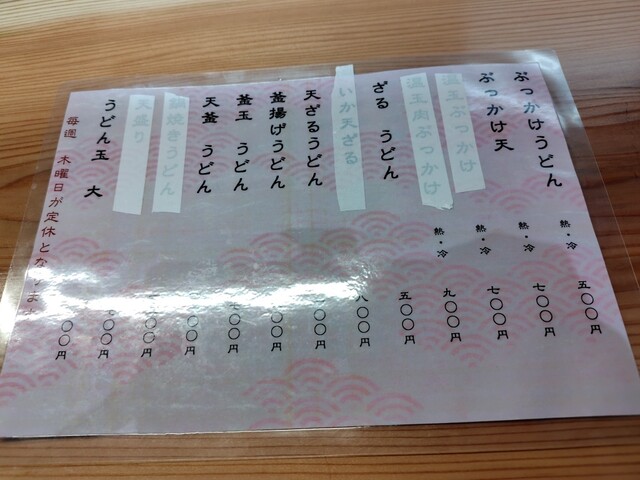 ぶっかけうどん 熱・冷 五〇〇円
ぶっかけ天 熱・冷 七〇〇円
温玉ぶっかけ 熱・冷 七〇〇円
温玉肉ぶっかけ 熱・冷 九〇〇円
ざるうどん 五〇〇円
いか天ざる 八〇〇円
天ざるうどん 〇〇円
釜揚げうどん 〇〇円
釜玉うどん 〇〇円
天釜うどん 〇〇円
鍋焼きうどん 〇〇円
天盛り 〇〇円
うどん玉 大 〇〇円
毎週 木曜日が定休となります 〇〇円